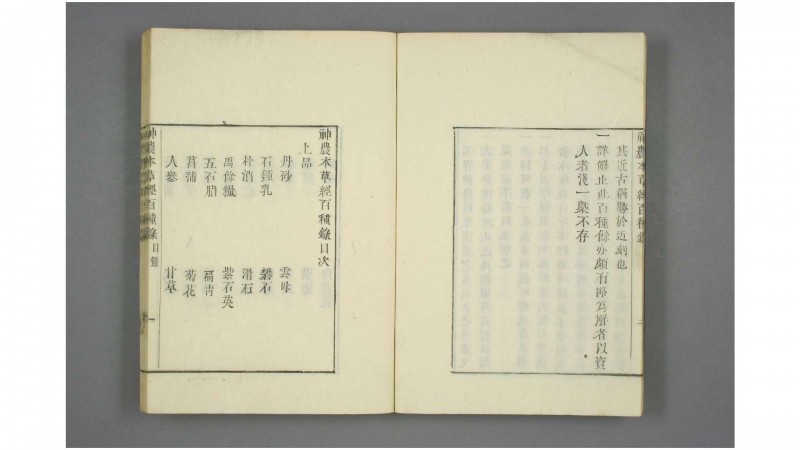 神農本草經百種錄
其近古猶勝於近刻也
一詳解止此百種餘亦頗有略爲解者以資
人者淺一槩不存
神農本草經百種錄目次
上品
丹砂 雲母
石鍾乳 礬石
朴消 滑石
禹餘糧 紫石英
五石脂 扁青
菖蒲 菊花
人參 甘草
神農本草經百種錄 目錄 一